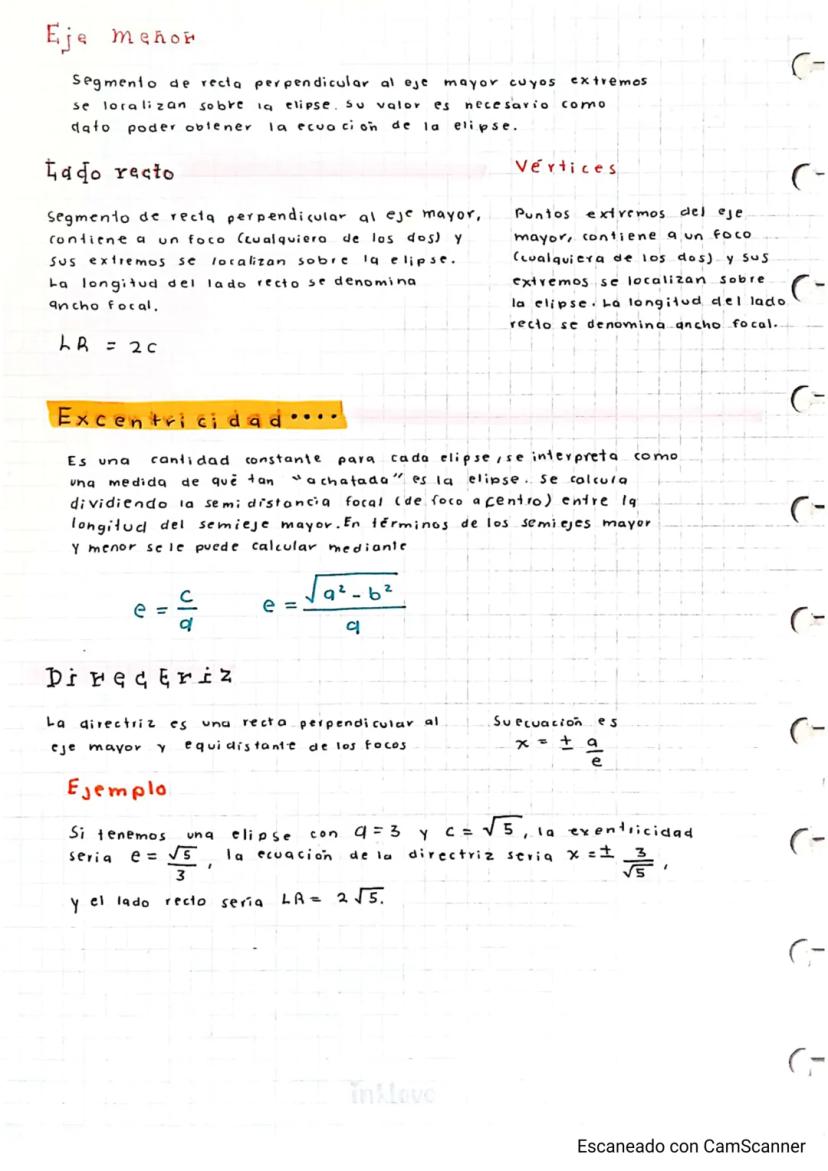 Eje menor
Segmento de recta perpendicular al eje mayor cuyos extremos
se localizan sobre la elipse. Su valor es necesario como
dato poder obtener la ecuación de la elipse.
Lado recto
Segmento de recta perpendicular al eje mayor,
contiene a un foco (cualquiera de los dos) y
sus extremos se localizan sobre la elipse.
La longitud del lado recto se denomina
ancho focal.
LR = 2c
Vértices
Puntos extremos del eje
mayor, contiene a un foco
(cualquiera de los dos) y sus
extremos se localizan sobre
la elipse. La longitud del lado
recto se denomina ancho focal.
Excentricidad....
Es una cantidad constante para cada elipse, se interpreta como
una medida de qué tan "achatada" es la elipse. Se calcula
dividiendo la semidistancia focal (de foco a centro) entre la
longitud del semieje mayor. En términos de los semiejes mayor
y menor se le puede calcular mediante
e = c/a e = √(a² - b²)/a
Directriz
La directriz es una recta perpendicular al
eje mayor y equidistante de los focos
Su ecuación es
x = ± a/e
Ejemplo
Si tenemos una elipse con a = 3 y c = √5, la exentricidad
seria e = √5/3, la ecuación de la directriz seria x = ± 3/√5,
y el lado recto sería LR = 2√5.
inklovo
Escaneado con CamScanner